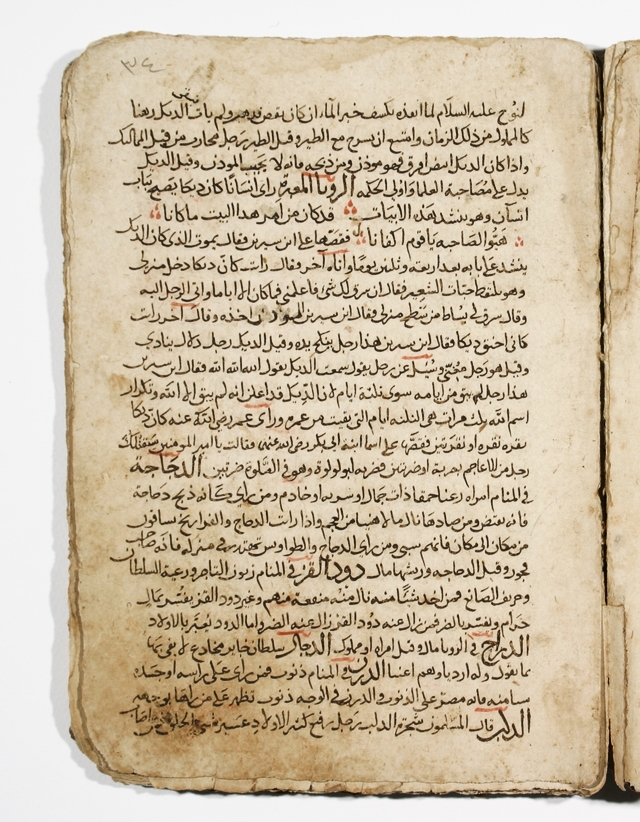 ٣٤
لنوح عليه السلام لما انفذه يكشف خبر الماء ان كان نقص فغدر ولم يات الديك رهنا
كالمملوك من ذلك الزمان وامتنع ان يسرح مع الطير وقيل الطير رجل محارب من قبل المماليك
واذا كان الديك ابيض افرق فهو موذن ومن ذبحه فانه لا يجيب الموذن وقيل الديك
يدل على مصاحبة العلما واولي الحكمه الرويا المعبرة راى انسانا كان ديكا يصيح بباب
انسان وهو ينشد هذه الابيات قد كان من امر هذا البيت ما كانا
هيوا لصاحبه يا قوم اكفانا فقصها على ابن سيرين فقال يموت الذي كان الديك
ينشد على بابه بعد اربعة وثلثين يوما واتاه اخر فقال رايت كان ديكا دخل منزلي
وهو يلتقط حبات الشعير فقال ان سرق لك شي فاعلمني فما كان الا اياما واتى الرجل اليه
وقال سرق لي بساط من سطح منزلي فقال ابن سيرين الموذن اخذه وقال اخر رايت
كاني اخنق ديكا فقال ابن سيرين هذا رجل ينكح يده وقيل الديك رجل دلال ينادي
وقيل هو رجل وسيل عن رجل يقول سمعت الديك يقول الله الله الله فقال ابن سيرين
هذا رجل لم يبق من ايامه سوى ثلثة ايام لان الديك قد اعلن انه لم يبق الا الله وتكرار
اسم الله ثلث مرات هي الثلثة ايام التي بقيت من عمره وراى عمر رضي الله عنه كان ديكا
نقره نقرة او نقرتين فقصها على اسما ابنة ابي بكر رضي الله عنهم فقالت يا امير المومنين يقتلك
رجل من الاعاجم بضربة او ضربتين فضربه ابو لولوة وهو في الصلوة ضربتين الدجاجه
في المنام امراه رعنا حمقا ذات جمال او سريه او خادم ومن راى كانه ذبح دجاجة
فانه يفتض ومن صادها نال مالا هنيا من العجم واذا رات الدجاج والفراريج يساقون
من مكان الى مكان فانهم سبي ومن راى الدجاج والطواويس في منزله فانه صاحب
فجور وقيل الدجاجه وريشها مال دود القز في المنام زبون التاجر ورعية السلطان
وحريف الصانع فمن اخذ شيئا منه نال منه منفعة منهم وغير دود القز يفسر بمال
حرام ويفسر بالضر فمن زال عنه دود القز زال عنه الضر واما الدود يعبر بالاولاد
الدراج في الرويا مال وقيل امراه او مملوك الدجال سلطان خاين مخادع لا يفي بما
بما يقول وله اردياوهم اعتنا الدرن في المنام ذنوب فمن راى على راسه او جسده
شيا منه فانه مصر على الذنوب والدرن في الوجه ذنوب تظهر على من راها بوجهه
الدلب قال المسلمون شجرة الدلب رجل رفيع كثير الاولاد عسير